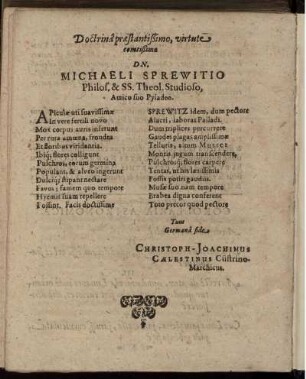 Doctrinâ præstantissimo, virtute
comtissimo
DN.
MICHAELI SPREWITIO
Philos, & SS. Theol. Studioso,
Amico suo Pyladeo.
APiculæ uti suavissimæ
In vere fertili novo
Mox corpus auris inserunt
Per rura amœna, frondea
Et floribus viridantia.
Ibiq; flores colligunt
Pulchros, rorum germina
Populant, & alveo ingerunt
Dulciq; stipant nectare
Favos; famem quo tempore
Hyemis suam repellere
Possint. Facis doctissime
SPREWITZ idem, dum pectore
Alacri, laboras Palladis
Dum triplicis percurrere
Gaudes plagas amplissimæ
Telluris, altum MUSICES
Montis jugum transcendere,
Pulchrosq; flores carpere
Tentas, ut his lætissimis
Possis potiri gaudiis.
Musæ suo nam tempore
Erabea digna conferent
Toto precor quod pectore
Tuus
Germanâ fide
CHRISTOPH-JOACHIMUS
CÆLESTINUS Cüstrino-
Marchicus.